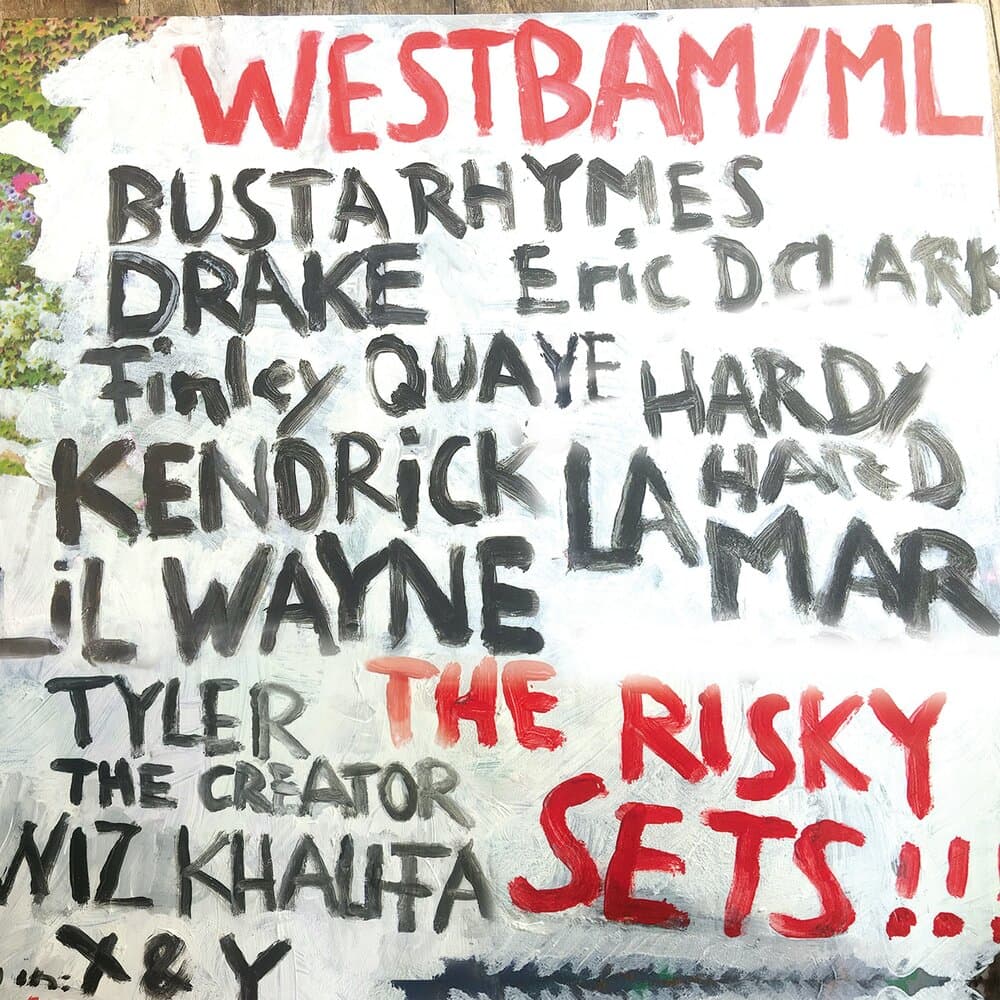 WESTBAM/ML
BUSTA RHYMES
DRAKE Eric D.ClARK
Finley QUAYE HARDY
HARD
KENDRiCK LA
MAR
LiL WAYNE
THE RISKY
TYLER
THE CREATOR
SETS!!!
WIZ KHALIFA
X & Y